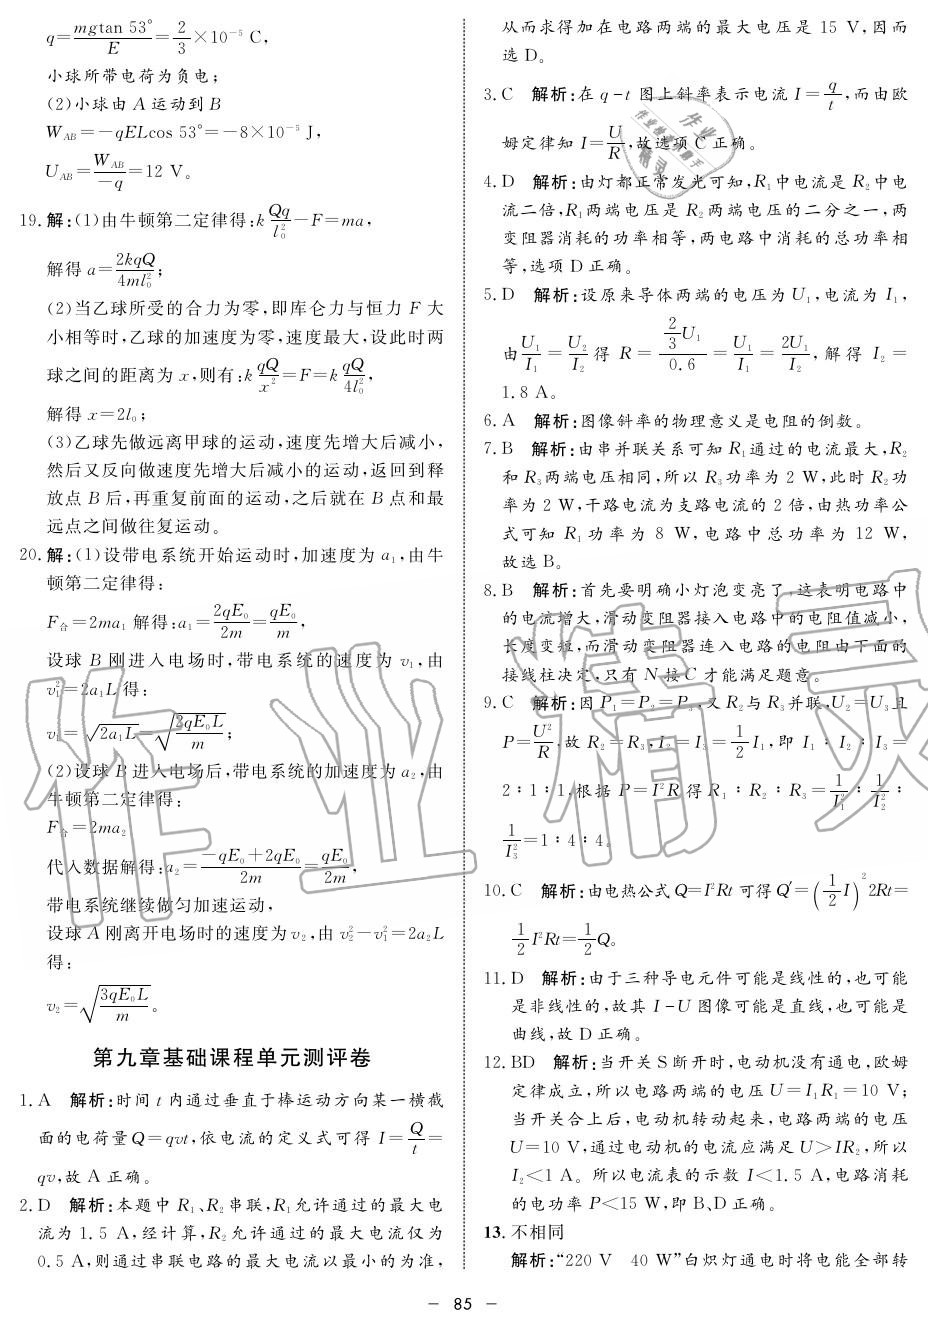 q=mgtan 53°/E=2/3×10⁻⁵ C,
小球所带电荷为负电;
(2)小球由 A 运动到 B
W_AB=-qELcos 53°=-8×10⁻⁵ J,
U_AB=W_AB/-q=12 V。
19. 解:(1)由牛顿第二定律得:k Qq/l₀²-F=ma,
解得 a=2kqQ/4ml₀²;
(2)当乙球所受的合力为零,即库仑力与恒力 F 大
小相等时,乙球的加速度为零,速度最大,设此时两
球之间的距离为 x,则有:k qQ/x²=F=k qQ/4l₀²,
解得 x=2l₀;
(3)乙球先做远离甲球的运动,速度先增大后减小,
然后又反向做速度先增大后减小的运动,返回到释
放点 B 后,再重复前面的运动,之后就在 B 点和最
远点之间做往复运动。
20. 解:(1)设带电系统开始运动时,加速度为 a₁,由牛
顿第二定律得:
F合=2ma₁ 解得:a₁=2qE₀/2m=qE₀/m,
设球 B 刚进入电场时,带电系统的速度为 v₁,由
v₁²=2a₁L 得:
v₁=√(2a₁L)=√(2qE₀L/m);
(2)设球 B 进入电场后,带电系统的加速度为 a₂,由
牛顿第二定律得:
F合=2ma₂
代入数据解得:a₂=(-qE₀+2qE₀)/2m=qE₀/2m,
带电系统继续做匀加速运动,
设球 A 刚离开电场时的速度为 v₂,由 v₂²-v₁²=2a₂L
得:
v₂=√(3qE₀L/m)。
第九章基础课程单元测评卷
1. A 解析:时间 t 内通过垂直于棒运动方向某一横截
面的电荷量 Q=qvt,依电流的定义式可得 I=Q/t=
qv,故 A 正确。
2. D 解析:本题中 R₁、R₂ 串联,R₁允许通过的最大电
流为 1.5 A,经计算,R₂ 允许通过的最大电流仅为
0.5 A,则通过串联电路的最大电流以最小的为准,
从而求得加在电路两端的最大电压是 15 V,因而
选 D。
3. C 解析:在 q-t 图上斜率表示电流 I=q/t,而由欧
姆定律知 I=U/R,故选项 C 正确。
4. D 解析:由灯都正常发光可知,R₁中电流是 R₂中电
流二倍,R₁两端电压是 R₂两端电压的二分之一,两
变阻器消耗的功率相等,两电路中消耗的总功率相
等,选项 D 正确。
5. D 解析:设原来导体两端的电压为 U₁,电流为 I₁,
由U₁/I₁=U₂/I₂ 得 R=(2/3 U₁)/0.6=U₁/I₁=2U₁/I₂,解得 I₂=
1.8 A。
6. A 解析:图像斜率的物理意义是电阻的倒数。
7. B 解析:由串并联关系可知 R₁通过的电流最大,R₂
和 R₃两端电压相同,所以 R₃功率为 2 W,此时 R₂功
率为 2 W,干路电流为支路电流的 2 倍,由热功率公
式可知 R₁功率为 8 W,电路中总功率为 12 W,
故选 B。
8. B 解析:首先要明确小灯泡变亮了,这表明电路中
的电流增大,滑动变阻器接入电路中的电阻值减小,
长度变短,而滑动变阻器连入电路的电阻由下面的
接线柱决定,只有 N 接 C 才能满足题意。
9. C 解析:因 P₁=P₂=P₃,又 R₂与 R₃并联,U₂=U₃且
P=U²/R,故 R₂=R₃,I₂=I₃=1/2 I₁,即 I₁∶I₂∶I₃=
2∶1∶1,根据 P=I²R 得 R₁∶R₂∶R₃=1/I₁²∶1/I₂²∶
1/I₃²=1∶4∶4。
10. C 解析:由电热公式 Q=I²Rt 可得 Q′=(1/2 I)²2Rt=
1/2 I²Rt=1/2 Q。
11. D 解析:由于三种导电元件可能是线性的,也可能
是非线性的,故其 I-U 图像可能是直线,也可能是
曲线,故 D 正确。
12. BD 解析:当开关 S 断开时,电动机没有通电,欧姆
定律成立,所以电路两端的电压 U=I₁R₁=10 V;
当开关合上后,电动机转动起来,电路两端的电压
U=10 V,通过电动机的电流应满足 U>IR₂,所以
I₂<1 A。所以电流表的示数 I<1.5 A,电路消耗
的电功率 P<15 W,即 B、D正确。
13. 不相同
解析:“220 V 40 W”白炽灯通电时将电能全部转
－ 85 －
作业精灵